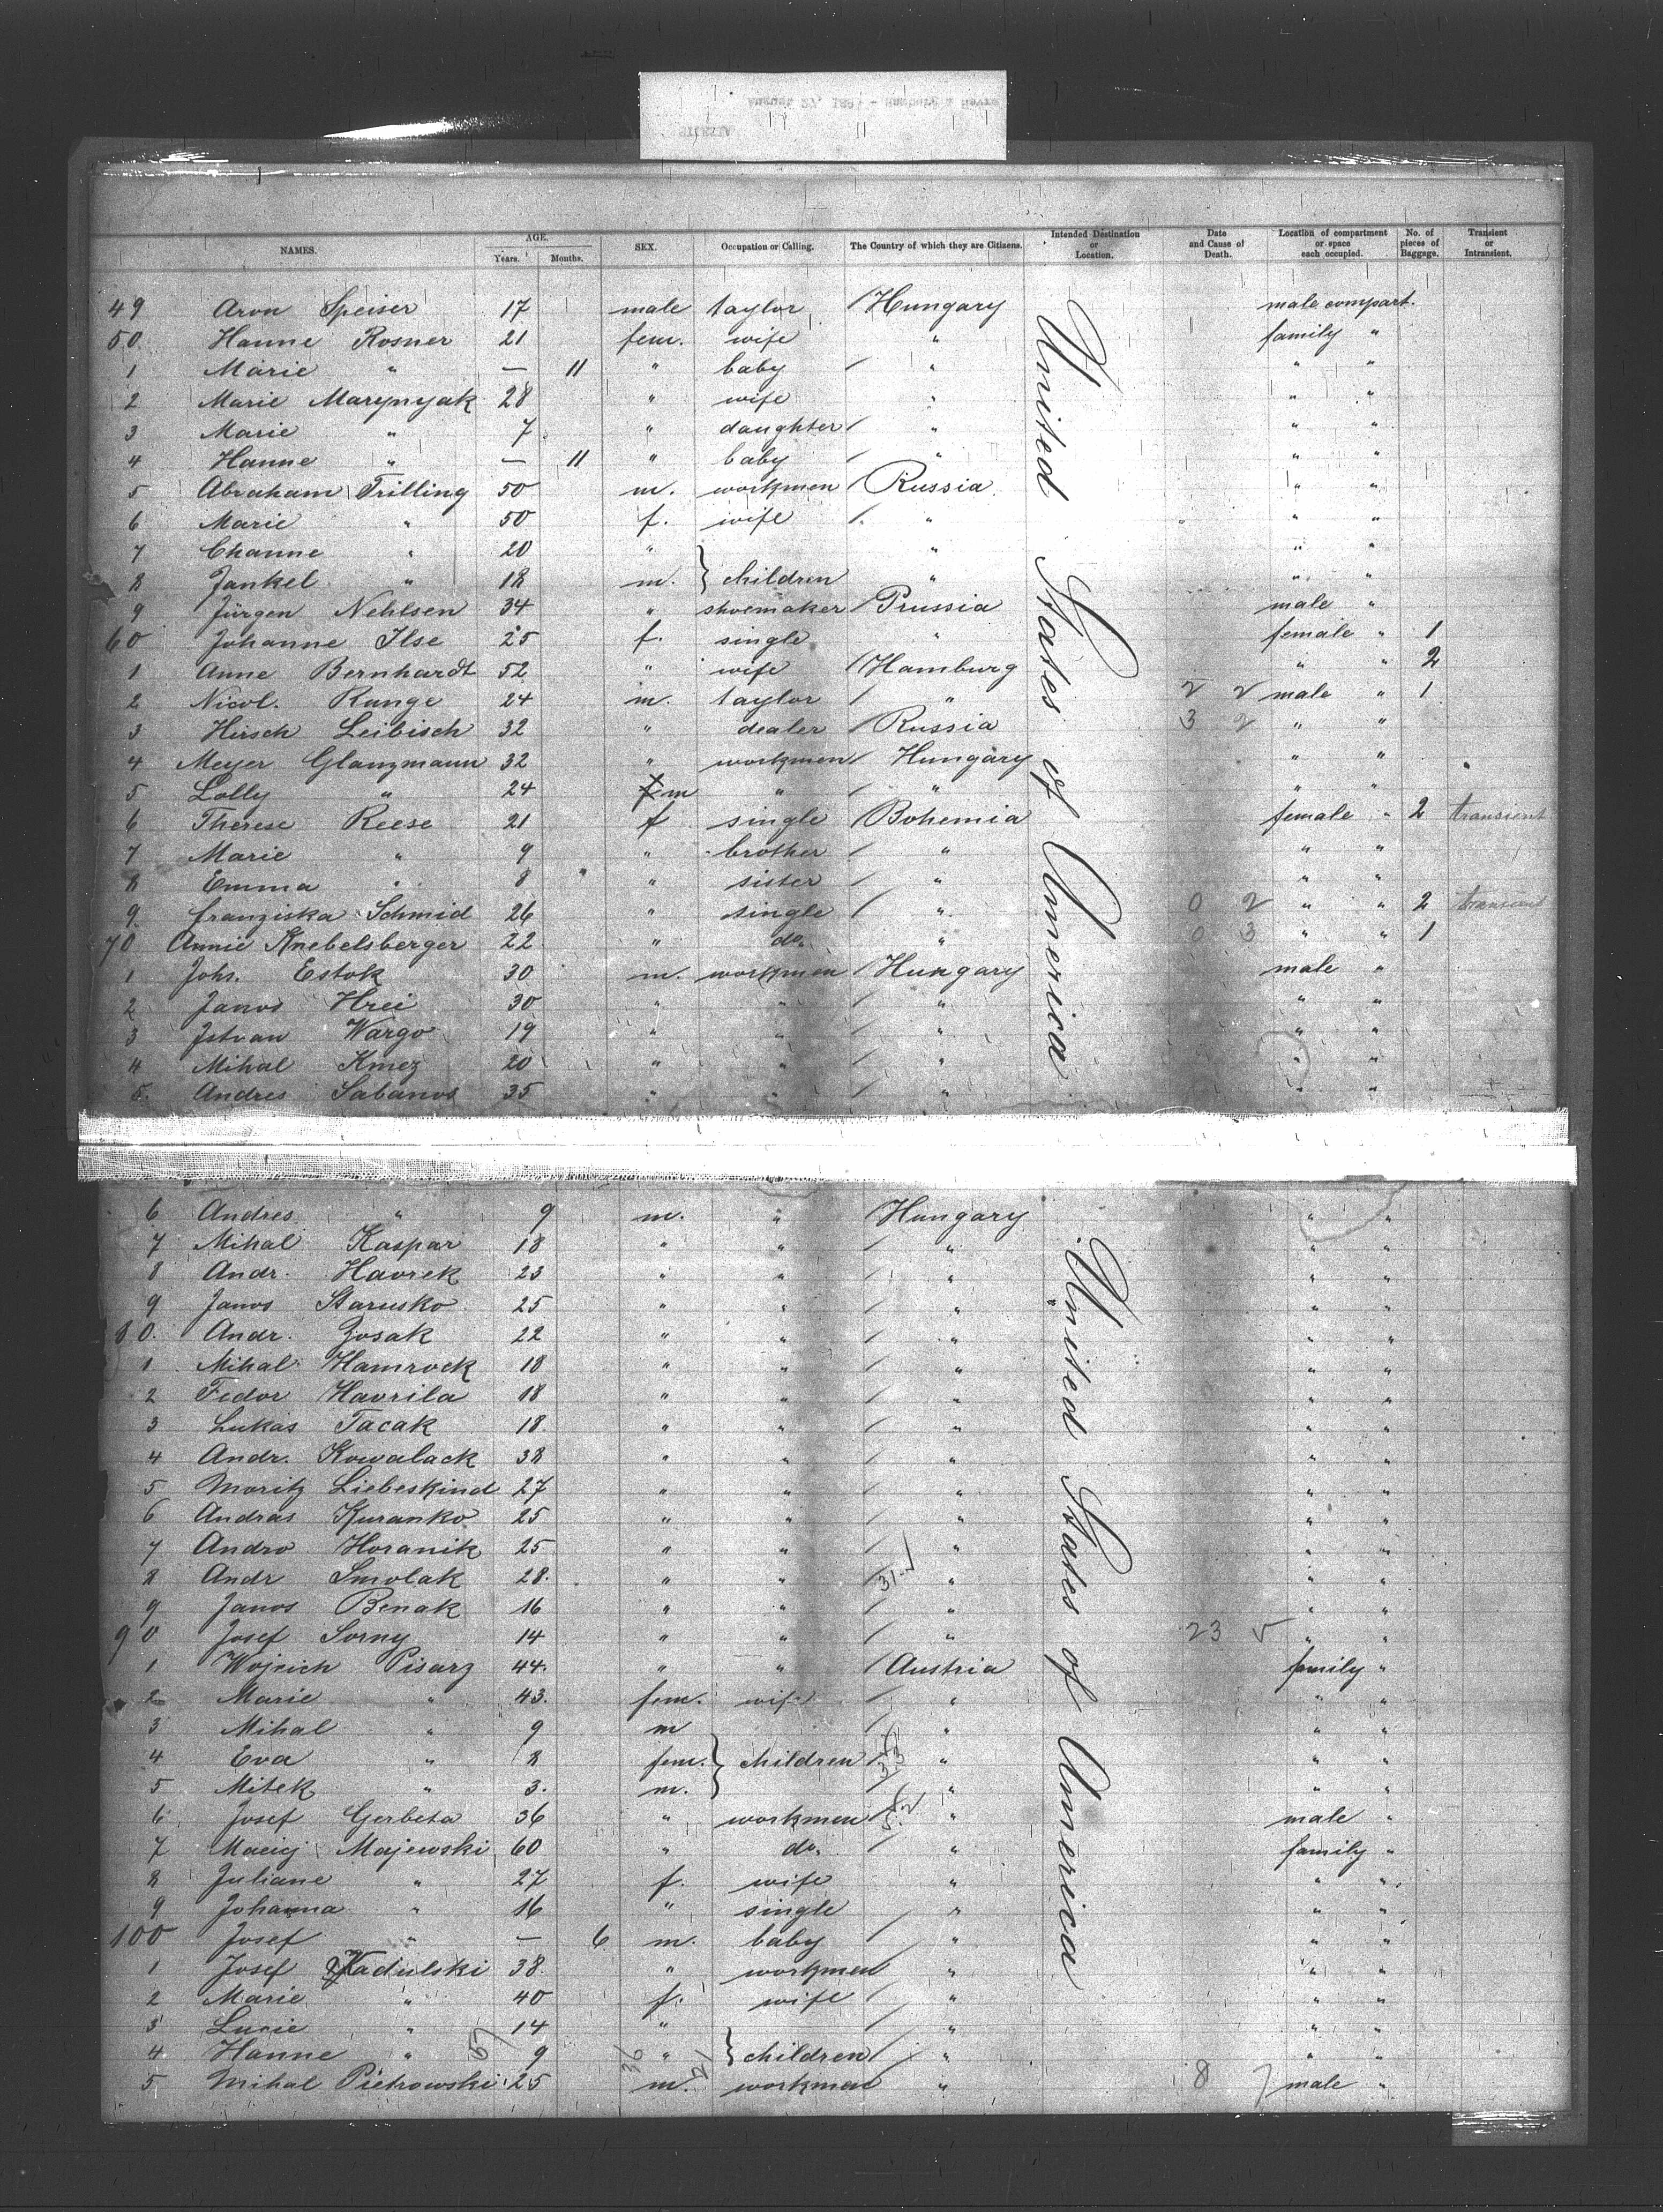 August 27, 188 - Hamburg & Havre
SILESIA
NAMES. AGE. Years. Months. SEX. Occupation or Calling. The Country of which they are Citizens. Intended Destination or Location. Date and Cause of Death. Location of compartment or space each occupied. No. of pieces of Baggage. Transient or Intransient.
United States of America
49 Aron Speiser 17 male taylor / Hungary male compart.
50. Hanne Rosner 21 fem. wife " family "
1 Marie " — 11 " baby / " " "
2 Marie Marynyak 28 " wife " " "
3 Marie " 7 " daughter / " " "
4 Hanne " — 11 " baby / " " "
5 Abraham Trilling 50 m. workmen / Russia " "
6 Marie " 50 f. wife / " " "
7 Channe " 20 " } children " " "
8 Jankel " 18 m. " " "
9 Jürgen Nehlsen 34 " shoemaker / Prussia male "
60 Johanne Ilse 25 f. single " female " 1
1 Anne Bernhardt 52 " wife / Hamburg " " 2
2 Nicol. Runge 24 m. taylor / " 2 2 male " 1
3 Hirsch Leibisch 32 " dealer / Russia 3 2 " "
4 Meyer Glanzmann 32 " workmen / Hungary " "
5 Lolly " 24 m " / " " "
6 Therese Reese 21 f single / Bohemia female " 2 transient
7 Marie " 9 " brother / " " "
8 Emma " 8 " sister / " " "
9. Franziska Schmid 26 " single / " 0 2 " " 2 transient
70 Annie Knebelsberger 22 " do. " 0 3 " " 1
1 Johs. Estok 30 m. workmen / Hungary male "
2 Janos Hrei 30 " " / " " "
3 Istvan Wargo 19 " " / " " "
4 Mihal Kmez 20 " " / " " "
5. Andres Sabanos 35 " " / " " "
United States of America
6 Andres " 9 m. " / Hungary " "
7 Mihal Kaspar 18 " " / " " "
8 Andr. Havrek 23 " " / " " "
9 Janos Starusko 25 " " / " " "
80. Andr. Zosak 22 " " / " " "
1 Mihal Hamrock 18 " " / " " "
2 Fedor Havrila 18 " " / " " "
3 Lukas Tacak 18. " " / " " "
4 Andr. Kowalack 38 " " / " " "
5 Moritz Liebeskind 27 " " / " " "
6 Andras Kuranko 25 " " / " " "
7 Andro Horanik 25 " " / " " "
8 Andr Smolak 28. " " 31. " " "
9 Janos Benak 16 " " / " " "
90 Josef Sorny 14 " " / " 23 " "
1 Wojcich Pisarz 44. " " / Austria family "
2 Marie " 43. fem. wife / " " "
3 Mihal " 9 m / " " "
4 Eva " 8 fem. } children / " " "
5 Mitek " 3. m. / " " "
6 Josef Gerbeta 36 " workmen / " male "
7 Maciej Majewski 60 " do. / " family "
8 Juliane " 27 f. wife " " "
9 Johanna " 16 " single " " "
100 Josef " — 6 m. baby / " " "
1 Josef Kadulski 38 " workmen " " "
2 Marie " 40 f. wife / " " "
3 Lucie " 14 " / " " "
4 Hanne " 9 " } children / " " "
5 Mihal Pietrowski 25 m. workmen " 8 7 male "